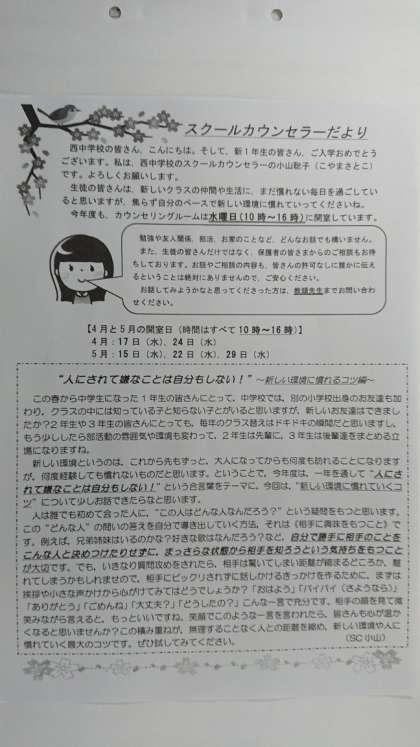 スクールカウンセラーだより
西中学校の皆さん、こんにちは。そして、新1年生の皆さん、ご入学おめでとう
ございます。私は、西中学校のスクールカウンセラーの小山聡子(こやまさとこ)
です。よろしくお願いします。
生徒の皆さんは、新しいクラスの仲間や生活に、まだ慣れない毎日を過ごしてい
ると思いますが、焦らず自分のペースで新しい環境に慣れていってくださいね。
今年度も、カウンセリングルームは水曜日(10時~16時)に開室しています。
勉強や友人関係、部活、お家のことなど、どんなお話でも構いません。
また、生徒の皆さんだけではなく、保護者の皆さまからのご相談もお待
ちしております。お話やご相談の内容も、皆さんの許可なしに誰かに伝え
るということは絶対にありませんので、ご安心ください。
お話してみようかなと思ってくださった方は、教頭先生までお問い合わ
せください。
【4月と5月の開室日(時間はすべて10時~16時)】
4月:17日(水)、24日(水)
5月:15日(水)、22日(水)、29日(水)
“人にされて嫌なことは自分もしない!” ~新しい環境に慣れるコツ編~
この春から中学生になった1年生の皆さんにとって、中学校では、別の小学校出身のお友達も加
わり、クラスの中には知っている子と知らない子とがいると思いますが、新しいお友達はできまし
たか?2年生や3年生の皆さんにとっても、毎年のクラス替えはドキドキの瞬間だと思いますし、
もう少ししたら部活動の雰囲気や環境も変わって、2年生は先輩に、3年生は後輩達をまとめる立
場になりますね。
新しい環境というのは、これから先もずっと、大人になってからも何度も訪れることになります
が、何度経験しても慣れないものだと思います。ということで、今年度は、一年を通して“人にさ
れて嫌なことは自分もしない!”という合言葉をテーマに、今回は、“新しい環境に慣れていくコ
ツ”について少しお話できたらなと思います。
人は誰でも初めて会った人に、“この人はどんな人なんだろう?”という疑問をもつと思います。
この“どんな人”の問いの答えを自分で導き出していく方法、それは《相手に興味をもつこと》で
す。例えば、兄弟姉妹はいるのかな?好きな歌はなんだろう?など、自分で勝手に相手のことを
こんな人と決めつけたりせずに、まっさらな状態から相手を知ろうという気持ちをもつこと
が大切です。でも、いきなり質問攻めをされたら、相手は驚いてしまい距離が縮まるどころか、離
れてしまうかもしれませので、相手にビックリされずに話しかけるきっかけを作るために、まずは
挨拶や小さな声かけから心がけてみてはどうでしょうか?「おはよう」「バイバイ(さようなら)」
「ありがとう」「ごめんね」「大丈夫?」「どうしたの?」こんな一言で充分です。相手の顔を見て微
笑みながら言えると、もっといいですね。笑顔でこのような一言を言われたら、皆さんも心が温か
くなると思いませんか?この積み重ねが、無理することなく人との距離を縮め、新しい環境や人に
慣れていく最大のコツです。ぜひ試してみてください。 (SC小山)